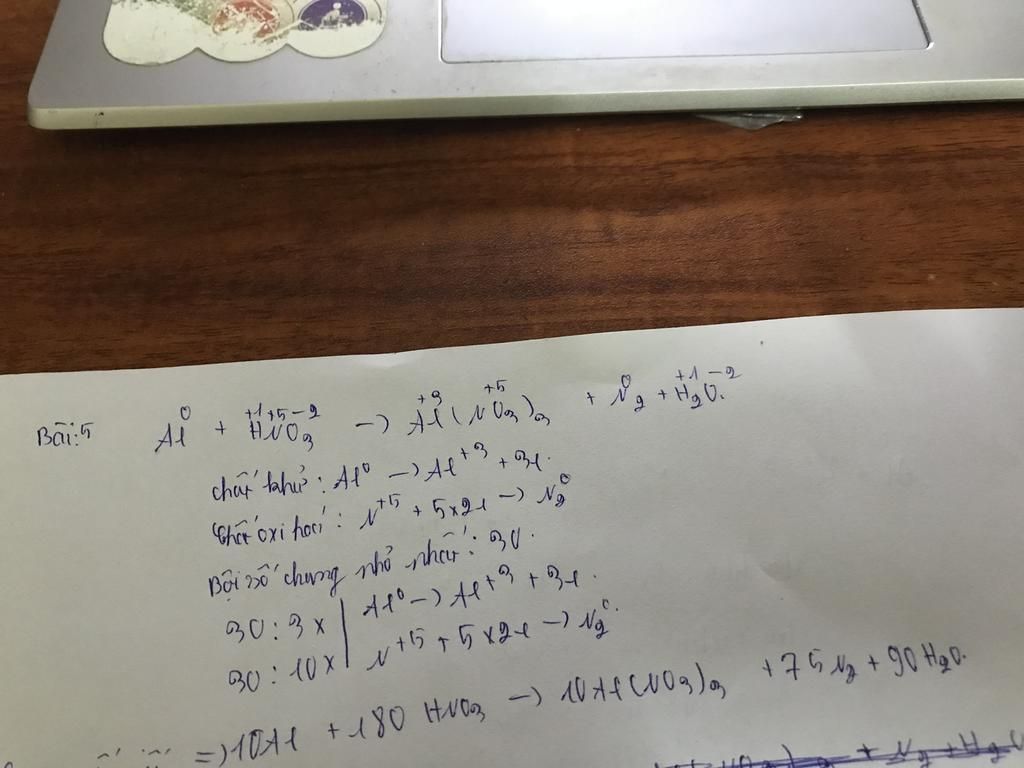 Bài:5 Al⁰ + H⁺¹N⁺⁵O₃⁻² → Al⁺³(N⁺⁵O₃)₃ + N₂⁰ + H₂⁺¹O⁻².
chất khử: Al⁰ → Al⁺³ + 3e.
chất oxi hoá: N⁺⁵ + 5×2e → N₂⁰
Bội số chung nhỏ nhất: 30.
30 : 3 × | Al⁰ → Al⁺³ + 3e.
30 : 10 × | N⁺⁵ + 5×2e → N₂⁰.
=> 10Al + 180 HNO₃ → 10Al(NO₃)₃ + 75N₂ + 90H₂O.
+ N₂ + H₂O